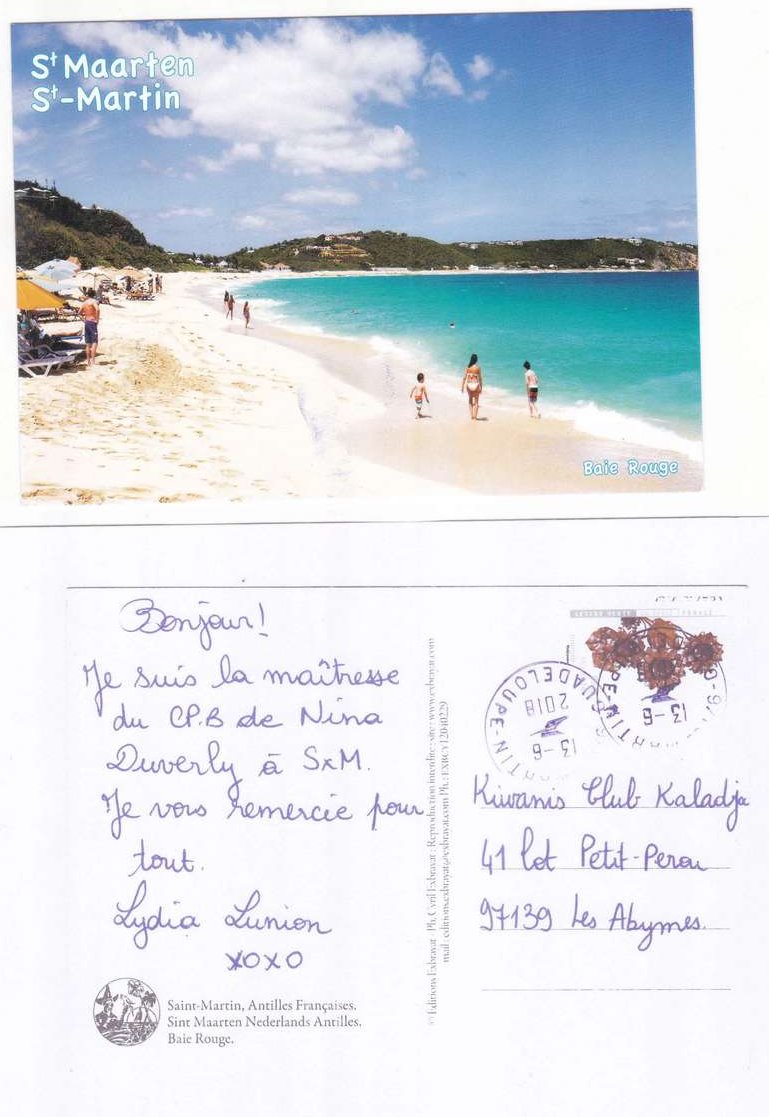 St Maarten
St-Martin
Baie Rouge
Bonjour!
Je suis la maîtresse
du CP.B de Nina
Duverly à SxM.
Je vous remercie pour
tout.
Lydia Lunion
xoxo
Saint-Martin, Antilles Françaises.
Sint Maarten Nederlands Antilles.
Baie Rouge.
© Editions Exbrayat - Ph. Cyril Exbrayat - Reproduction interdite - site : www.exbrayat.com
mail : editions.exbrayat@exbrayat.com Ph.: EXBCY12040229
GUADELOUPE-
2018
13-6
13-6
Kiwanis Club Kaladja
41 lot Petit-Perou
97139 Les Abymes.